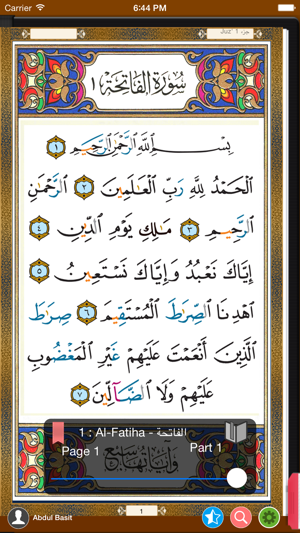 Carrier 6:44 PM
Juz' 1 جزء
سورة الفاتحة ١
بِسْمِ اللَّهِ الرَّحْمَٰنِ الرَّحِيمِ ١
الْحَمْدُ لِلَّهِ رَبِّ الْعَالَمِينَ ٢ الرَّحْمَٰنِ
الرَّحِيمِ ٣ مَالِكِ يَوْمِ الدِّينِ ٤
إِيَّاكَ نَعْبُدُ وَإِيَّاكَ نَسْتَعِينُ ٥
اهْدِنَا الصِّرَاطَ الْمُسْتَقِيمَ ٦ صِرَاطَ
الَّذِينَ أَنْعَمْتَ عَلَيْهِمْ غَيْرِ الْمَغْضُوبِ
عَلَيْهِمْ وَلَا الضَّالِّينَ ٧
1 : Al-Fatiha - الفاتحة
Page 1 Part 1
وآياتها سبع
1
Abdul Basit